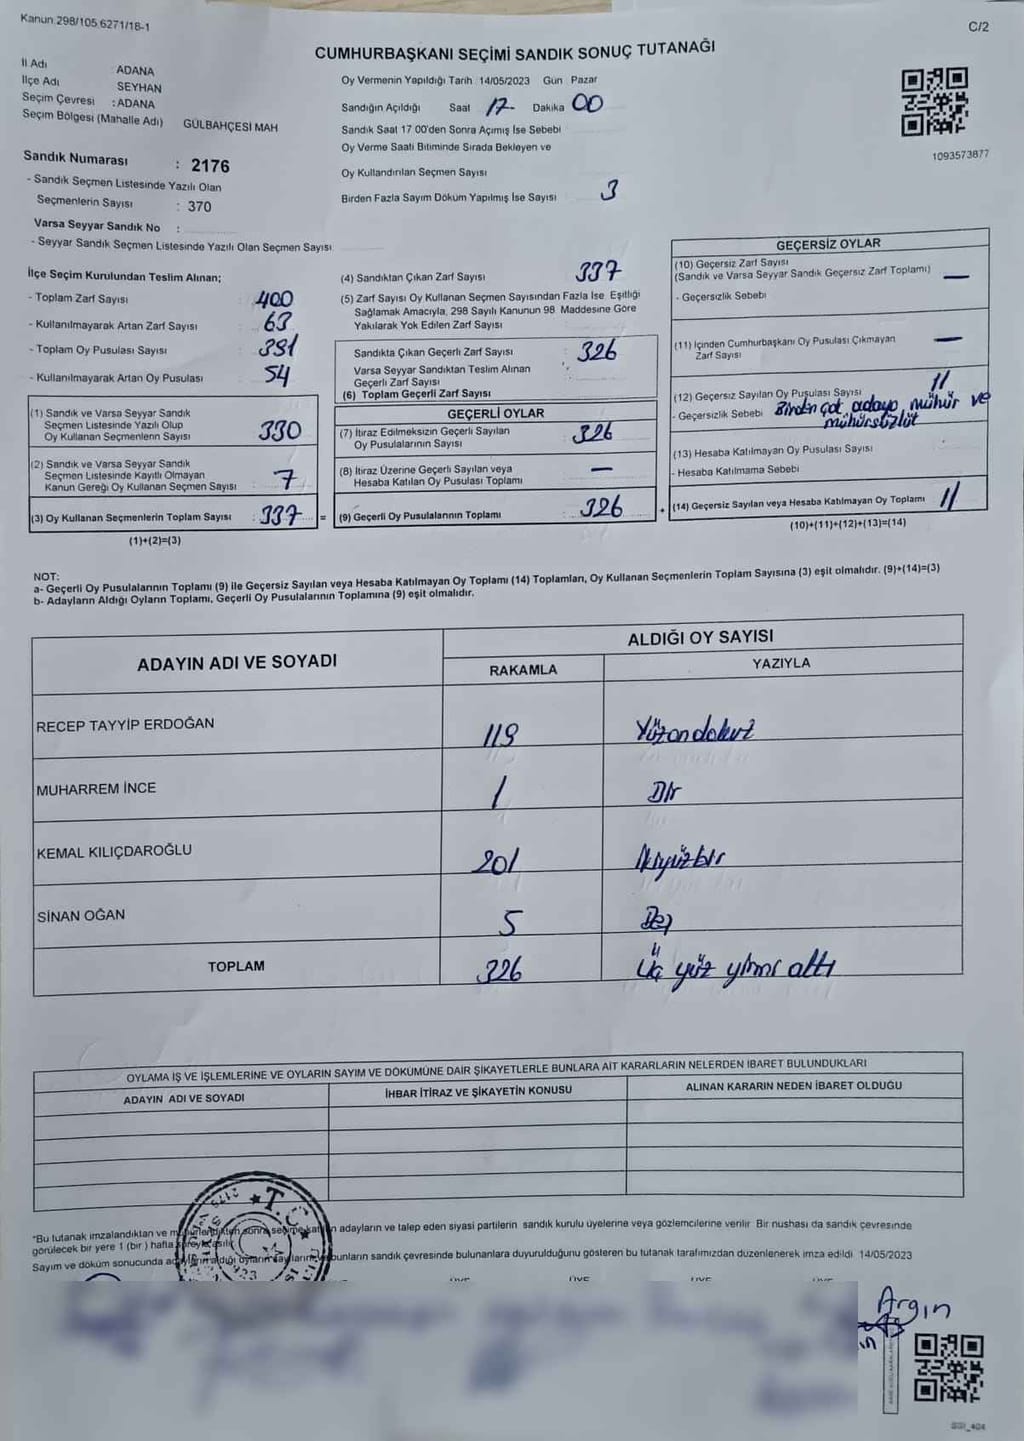 Kanun 298/105,6271/18-1
C/2
CUMHURBAŞKANI SEÇİMİ SANDIK SONUÇ TUTANAĞI
İl Adı : ADANA
İlçe Adı SEYHAN
Seçim Çevresi : ADANA
Seçim Bölgesi (Mahalle Adı) GÜLBAHÇESİ MAH
Sandık Numarası : 2176
- Sandık Seçmen Listesinde Yazılı Olan
Seçmenlerin Sayısı : 370
Varsa Seyyar Sandık No :
- Seyyar Sandık Seçmen Listesinde Yazılı Olan Seçmen Sayısı
Oy Vermenin Yapıldığı Tarih 14/05/2023 Gün Pazar
Sandığın Açıldığı Saat 17- Dakika 00
Sandık Saat 17 00'den Sonra Açımış İse Sebebi
Oy Verme Saati Bitiminde Sırada Bekleyen ve
Oy Kullandırılan Seçmen Sayısı
Birden Fazla Sayım Döküm Yapılmış İse Sayısı 3
1093573877
İlçe Seçim Kurulundan Teslim Alınan;
- Toplam Zarf Sayısı 400
- Kullanılmayarak Artan Zarf Sayısı 63
- Toplam Oy Pusulası Sayısı 391
- Kullanılmayarak Artan Oy Pusulası 54
(1) Sandık ve Varsa Seyyar Sandık
Seçmen Listesinde Yazılı Olup
Oy Kullanan Seçmenlerin Sayısı 330
(2) Sandık ve Varsa Seyyar Sandık
Seçmen Listesinde Kayıtlı Olmayan
Kanun Gereği Oy Kullanan Seçmen Sayısı 7
(3) Oy Kullanan Seçmenlerin Toplam Sayısı : 337 =
(1)+(2)=(3)
(4) Sandıktan Çıkan Zarf Sayısı 337
(5) Zarf Sayısı Oy Kullanan Seçmen Sayısından Fazla İse Eşitliği
Sağlamak Amacıyla, 298 Sayılı Kanunun 98 Maddesine Göre
Yakılarak Yok Edilen Zarf Sayısı
Sandıkta Çıkan Geçerli Zarf Sayısı : 326
Varsa Seyyar Sandıktan Teslim Alınan
Geçerli Zarf Sayısı
(6) Toplam Geçerli Zarf Sayısı
GEÇERLİ OYLAR
(7) İtiraz Edilmeksizin Geçerli Sayılan
Oy Pusulalarının Sayısı 326
(8) İtiraz Üzerine Geçerli Sayılan veya
Hesaba Katılan Oy Pusulası Toplamı —
(9) Geçerli Oy Pusulalarının Toplamı : 326 +
GEÇERSİZ OYLAR
(10) Geçersiz Zarf Sayısı
(Sandık ve Varsa Seyyar Sandık Geçersiz Zarf Toplamı) —
- Geçersizlik Sebebi
(11) İçinden Cumhurbaşkanı Oy Pusulası Çıkmayan
Zarf Sayısı —
(12) Geçersiz Sayılan Oy Pusulası Sayısı 11
- Geçersizlik Sebebi Birden çok adaya mühür ve
mühürsüzlük
(13) Hesaba Katılmayan Oy Pusulası Sayısı
- Hesaba Katılmama Sebebi
(14) Geçersiz Sayılan veya Hesaba Katılmayan Oy Toplamı 11
(10)+(11)+(12)+(13)=(14)
NOT:
a- Geçerli Oy Pusulalarının Toplamı (9) ile Geçersiz Sayılan veya Hesaba Katılmayan Oy Toplamı (14) Toplamları, Oy Kullanan Seçmenlerin Toplam Sayısına (3) eşit olmalıdır. (9)+(14)=(3)
b- Adayların Aldığı Oyların Toplamı, Geçerli Oy Pusulalarının Toplamına (9) eşit olmalıdır.
ADAYIN ADI VE SOYADI
ALDIĞI OY SAYISI
RAKAMLA YAZIYLA
RECEP TAYYİP ERDOĞAN 119 Yüzondokuz
MUHARREM İNCE 1 Bir
KEMAL KILIÇDAROĞLU 201 İkiyüzbir
SİNAN OĞAN 5 Beş
TOPLAM 326 Üç yüz yirmi altı
OYLAMA İŞ VE İŞLEMLERİNE VE OYLARIN SAYIM VE DÖKÜMÜNE DAİR ŞİKAYETLERLE BUNLARA AİT KARARLARIN NELERDEN İBARET BULUNDUKLARI
ADAYIN ADI VE SOYADI İHBAR İTİRAZ VE ŞİKAYETİN KONUSU ALINAN KARARIN NEDEN İBARET OLDUĞU
T.C.
*Bu tutanak imzalandıktan ve mühürlendikten sonra seçime katılan adayların ve talep eden siyasi partilerin sandık kurulu üyelerine veya gözlemcilerine verilir Bir nushası da sandık çevresinde
görülecek bir yere 1 (bir) hafta süreyle asılır.
Sayım ve döküm sonucunda adayların aldığı oyların sayılarını bunların sandık çevresinde bulunanlara duyurulduğunu gösteren bu tutanak tarafımızdan düzenlenerek imza edildi 14/05/2023
Argın